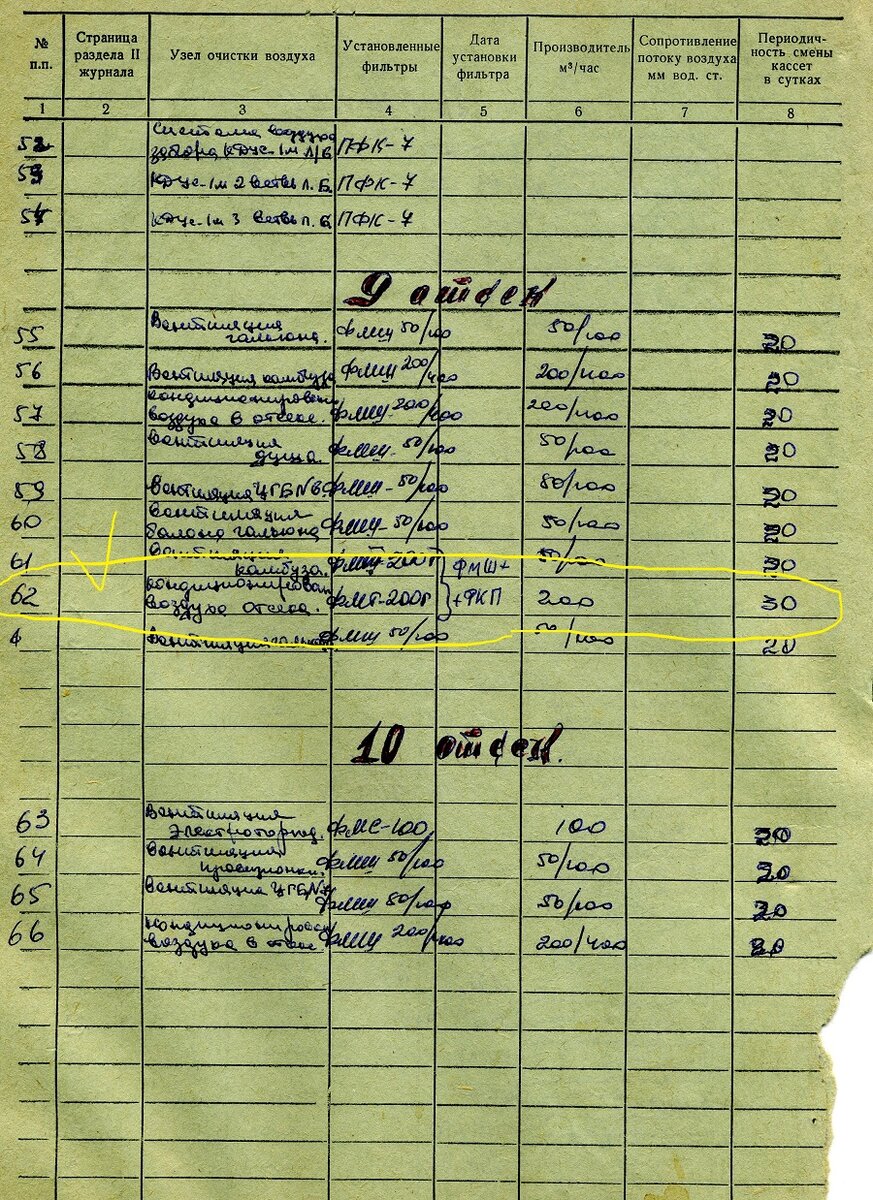 № п.п. Страница раздела II журнала Узел очистки воздуха Установленные фильтры Дата установки фильтра Производитель м³/час Сопротивление потоку воздуха мм вод. ст. Периодичность смены кассет в сутках
1 2 3 4 5 6 7 8
52 Система воздухо
забора КДУС-1м Л/Б ПФК-7
53 КДУс-1м 2 ветвь Л.Б. ПФК-7
54 КДУс-1м 3 ветвь Л.Б. ПФК-7
9 отсек
55 Вентиляция
гальюна. ФМШ 50/100 50/100 20
56 Вентиляция камбуза ФМШ 200/400 200/400 20
57 кондиционирован
воздуха в отсеке. ФМШ-200/400 200/400 20
58 Вентиляция
душа. ФМШ-50/100 50/100 20
59 Вентиляция ЦГБ№6 ФМШ-50/100 50/100 20
60 Вентиляция
балона гальюна ФМШ-50/100 50/100 20
61 Вентиляция
камбуза. ФМТ-200г ФМШ+ 50/100 20
62 кондиционирован
воздуха отсека. ФМТ-200г +ФКП 200 30
Вентиляция ФМШ 50/100 50/100 20
10 отсек.
63 Вентиляция
электроторпед. ФМС-100 100 20
64 Вентиляция
провизионки. ФМШ 50/100 50/100 20
65 Вентиляция ЦГБ№ ФМШ 50/100 50/100 20
66 кондиционирован
воздуха в отсеке ФМШ 200/400 200/400 20